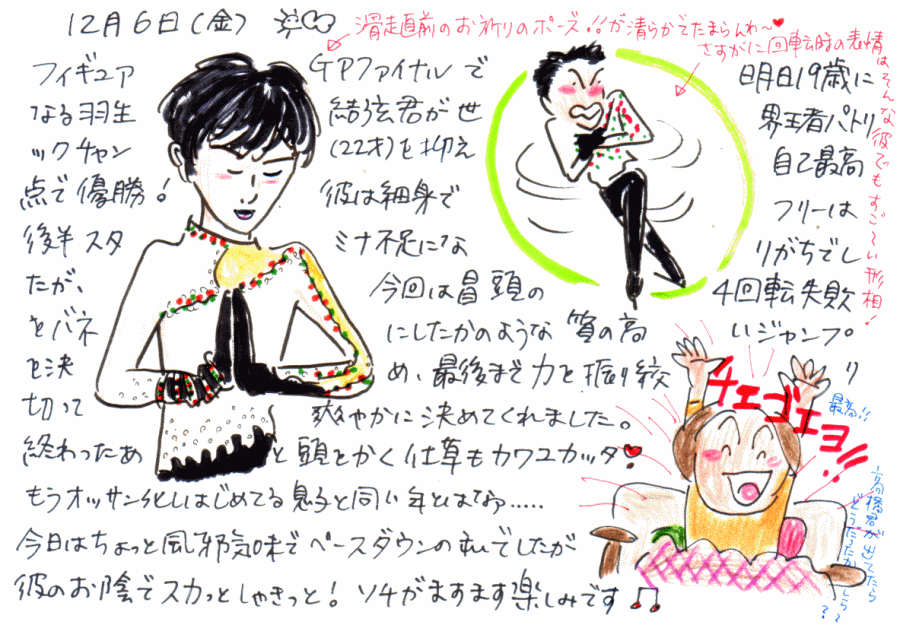 12月6日(金)
滑走直前のお祈りのポーズ!!が清らかでたまらんわ〜♥
さすがに回転時の表情はそんな彼でもすご〜い形相!
フィギュア GPファイナルで 明日19歳に
なる羽生 結弦君が世 界王者パトリ
ックチャン (22才)を抑え 自己最高
点で優勝! 彼は細身で フリーは
後半スタ ミナ不足にな りがちでし
たが、 今回は冒頭の 4回転失敗
をバネ にしたかのような 質の高 いジャンプ
を決 め、最後まで力を振り絞 り
切って 爽やかに決めてくれました。
終わったあ と頭をかく仕草もカワユカッタ♥
もうオッサン化しはじめてる息子と同い年とはなぁ.....
今日はちょっと風邪気味でペースダウンの
でしたが
彼のお陰でスカっとしゃきっと! ソチがますます楽しみです♫
チェゴエヨ!!
最高!!
高橋君が出てたらどうだったかしら?